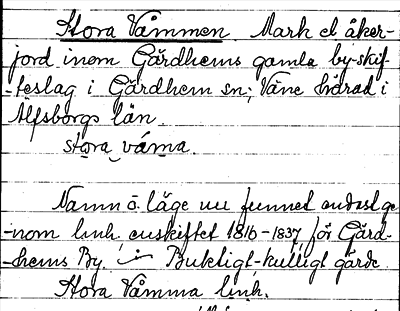 Stora Våmmen. Mark el åker-
jord inom Gärdhems gamla by-skif-
-teslag i Gärdhem sn; Väne härad i
Älfsborgs län.
stora våma.
Namn o. läge nu funnet endast ge-
-nom linh. enskiftet 1816-1837, för Gärd-
-hems By. Buktigt-kulligt gärde.
Stora Våmma linh.